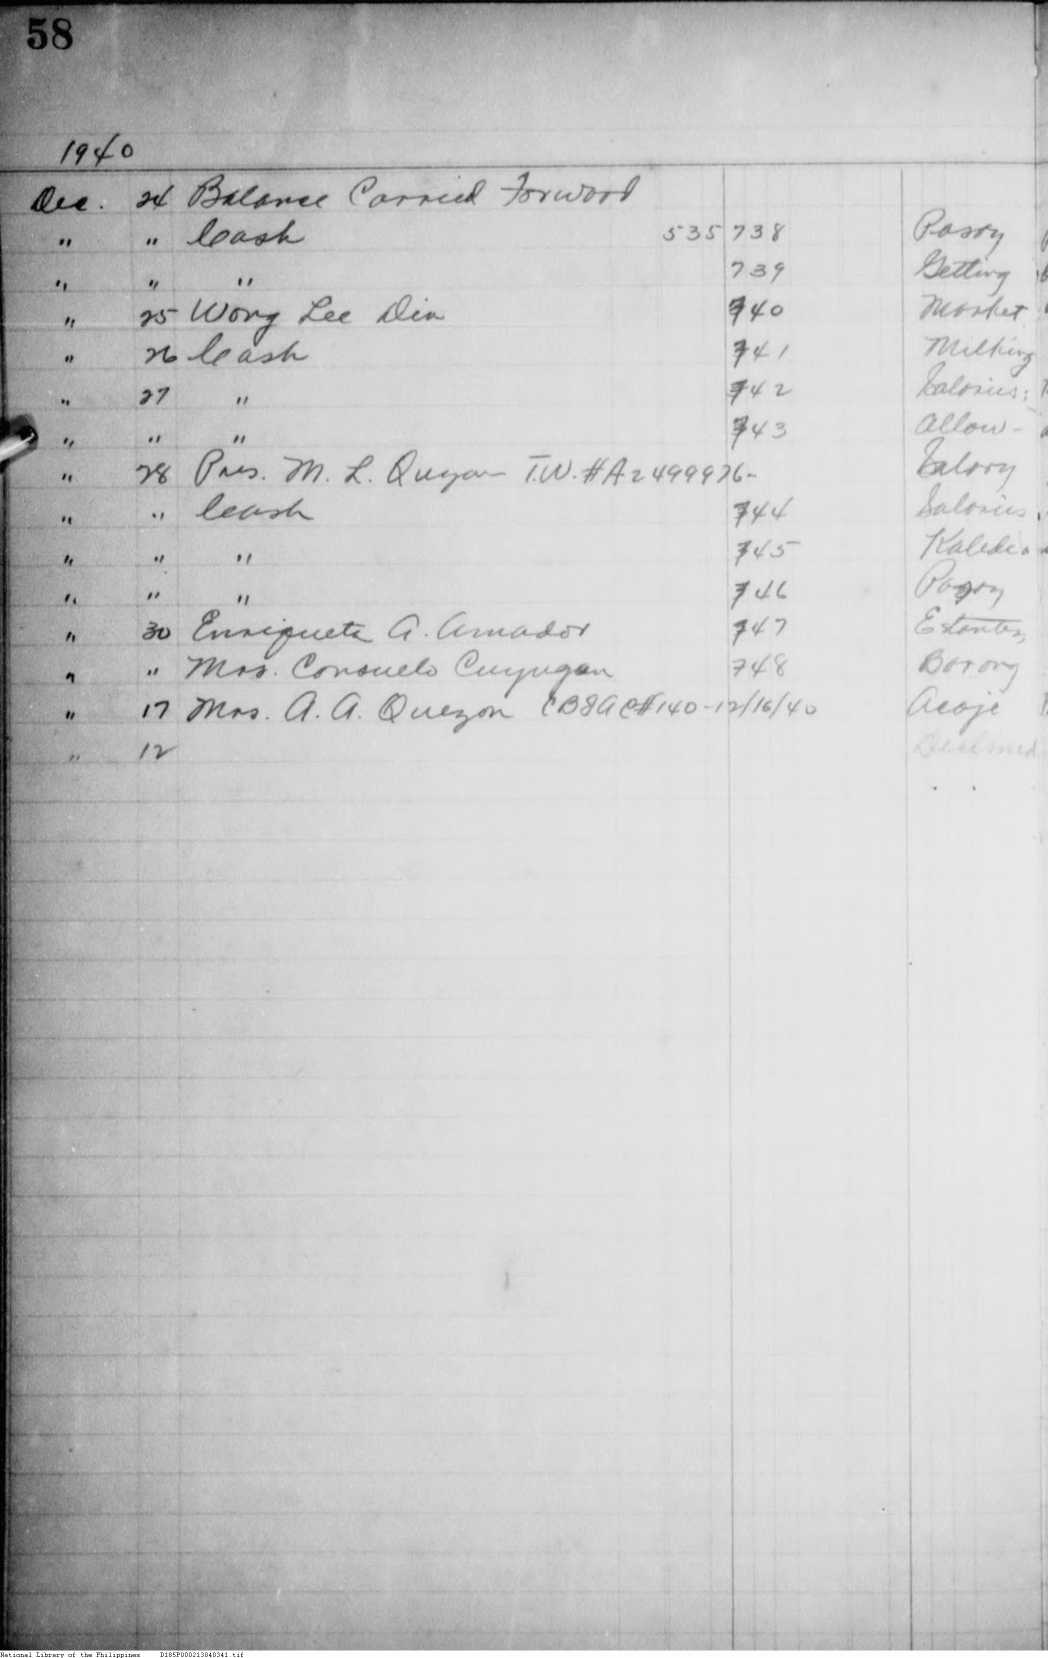 58
1940
Dec. 24 Balance Carried Forward
" " Cash 535 738 Pasay
" " " 739 Getting
" 25 Wong Lee Din 740 Market
" 26 Cash 741 Milking
" 27 " 742 Salaries;
" " " 743 Allow-
" 28 Pres. M. L. Quezon T.W. #A2499976- Salary
" " Cash 744 Salaries
" " " 745
" " " 746 Pasay
" 30 Enriqueta A. Amador 747
" " Mrs. Consuelo Cuyugan 748
" 17 Mrs. A. A. Quezon CB&A C#140-12/16/40 Acoje
" 12
National Library of the Philippines D185P000213840341.tif